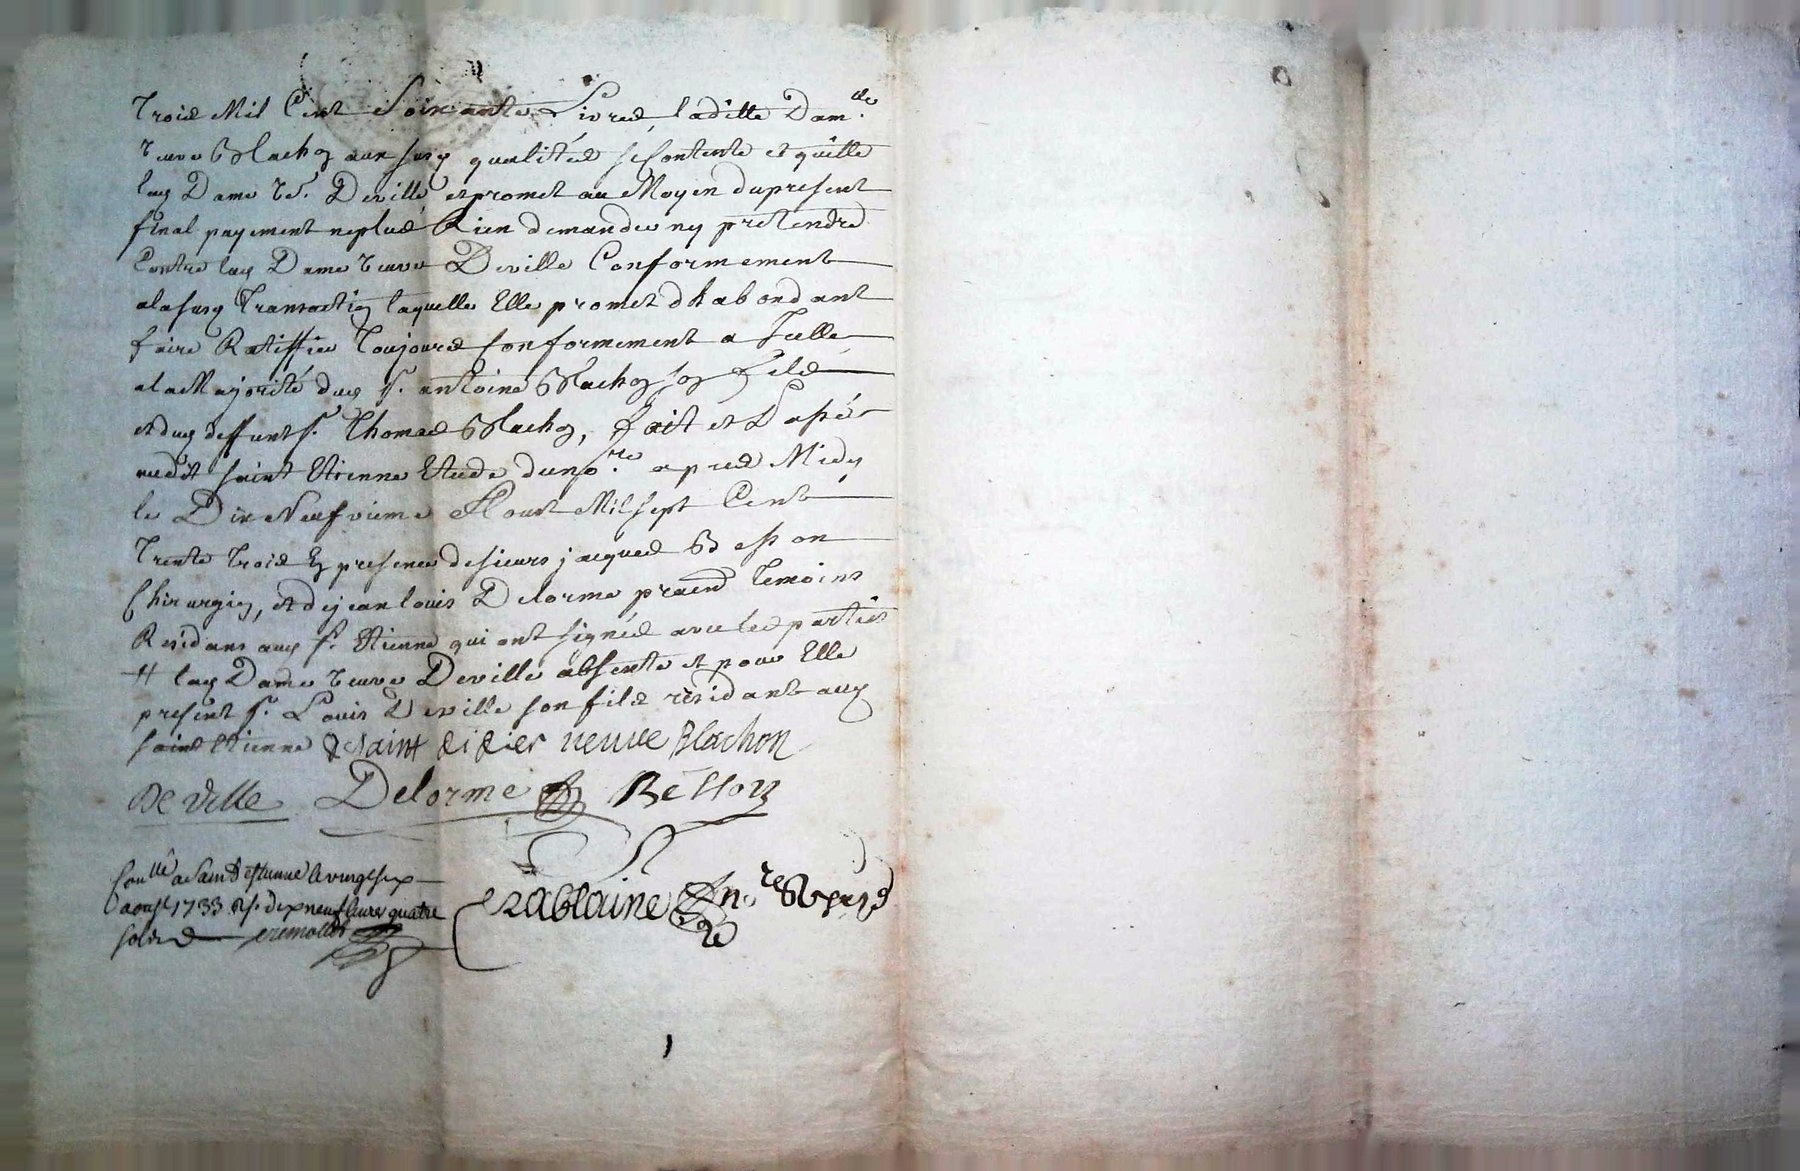 Trois Mil Cent Soixante Livres, ladille Dam.lle
veuve Blachon aux susd qualités se Contente et quitte
lad Dame ve. Deville, et promet au Moyen du present
final payement ne plus Rien demander ny pretendre
Contre lad Dame veuve Deville Conformement
a la susd Transaction laquelle Elle promet d'habondant
faire Ratiffier Toujours Conformement a Icelle
a la Majorité dud sr. antoine Blachon son fils
et dud deffunt sr. Thomas Blachon, fait et Passé
audit saint Etienne Etude du no.re apres Midy
le Dix Neufvieme Aoust Mil sept Cent
Trente Trois En presence de sieurs jacques Besson
Chirurgien, et de jean louis Delorme praticn Temoins
Residans aud st. Etienne qui ont signés avec les parties
# lad Dame veuve Deville absente et pour Elle
present sr. Louis Deville son fils residant aud
saint Etienne De saint didier veuve Blachon
De Ville Delorme Besson
Conllé a Saint estienne le vingt six
aoust 1733 R. dix neuf livres quatre
sols